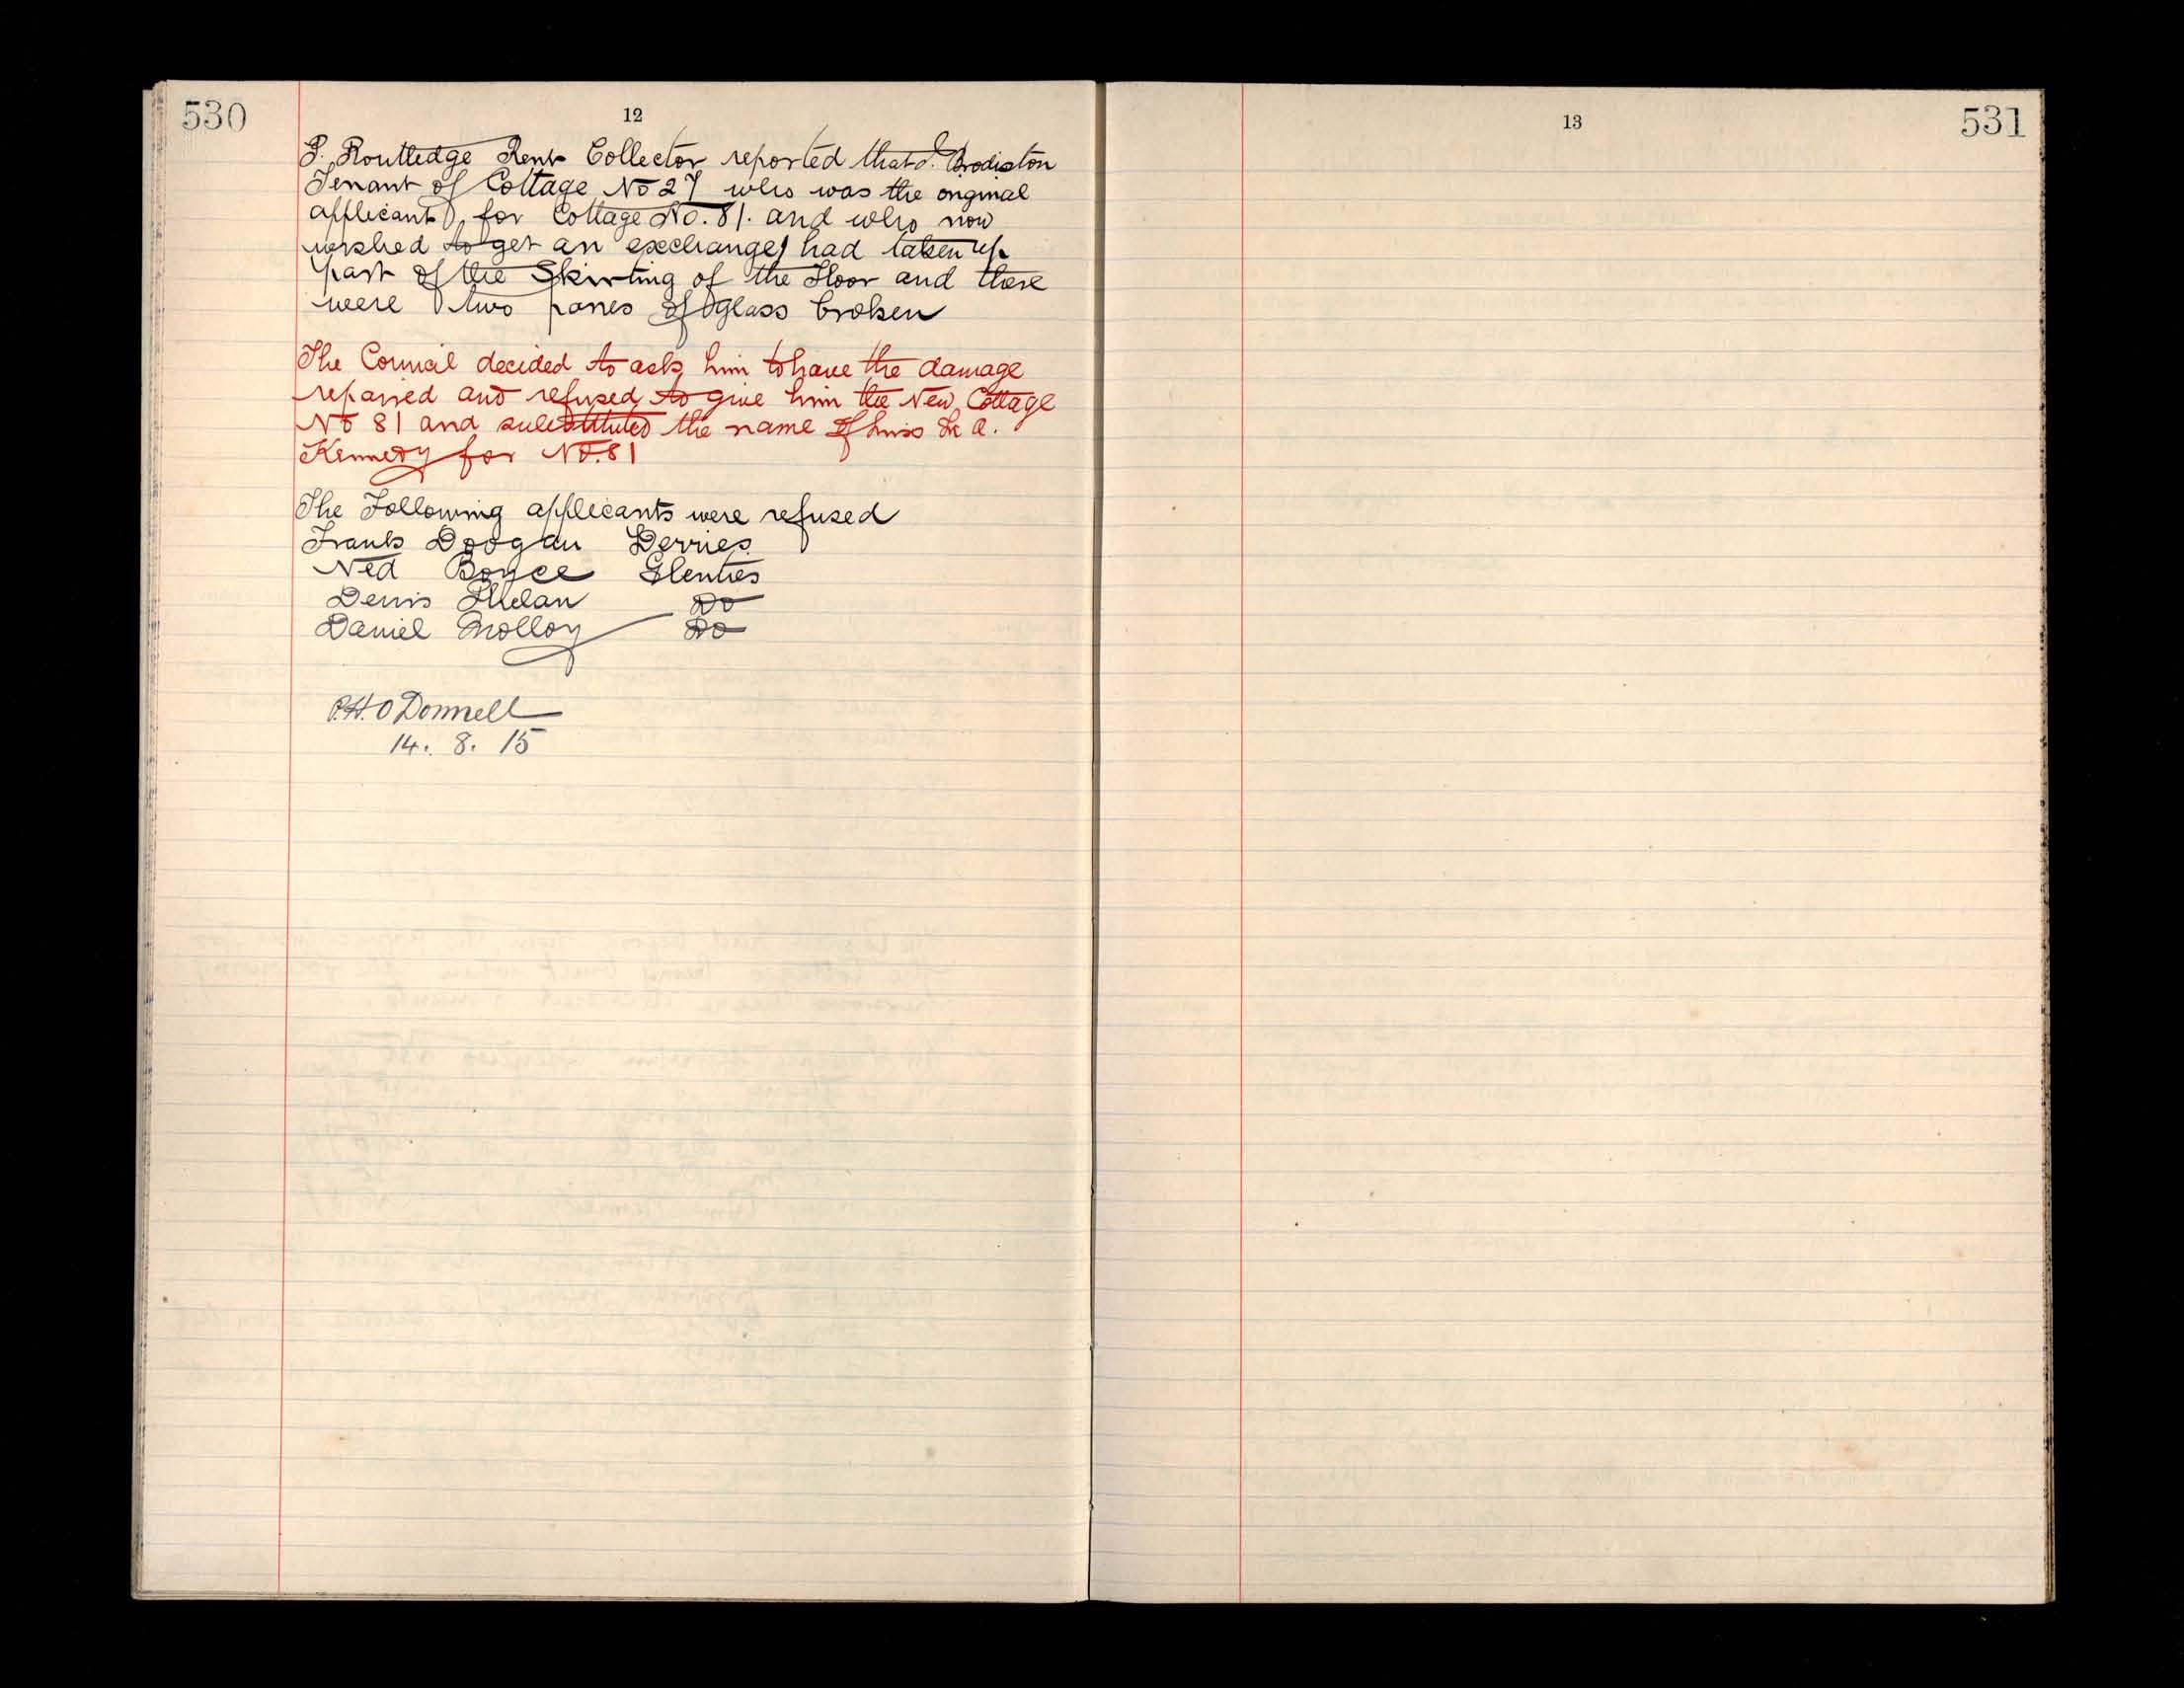 530
12
P. Routledge Rent Collector reported that J. Brodiston
Tenant of Cottage No 27 who was the original
applicant, for Cottage No. 81. and who now
wished to get an exchange, had taken up
part of the Skirting of the Floor and there
were two panes of glass broken
The Council decided to ask him to have the damage
repaired and refused to give him the New Cottage
No 81 and substituted the name of Miss A.
Kennedy for No. 81
The Following applicants were refused
Frank Doogan Derries
Ned Boyce Glenties
Denis Do
Daniel Molloy Do
P.H. O Donnell
14. 8. 15
13
531